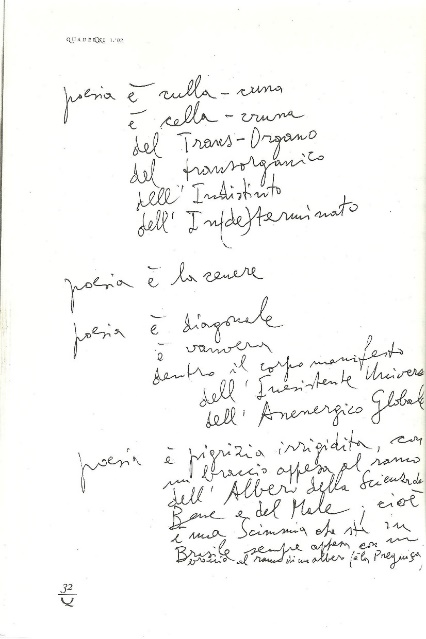 QUADERNO
poesia è culla - cuna
è cella - cruna
del Trans-Organo
del transorganico
dell'Indistinto
dell'In(de)terminato
poesia è la cenere
poesia è diagonale
è vanvera
dentro il corpo manifesto
dell'Inesistente Univers
dell'Anenergico Global
poesia è pigrizia irrigidita, con
un braccio appesa al ramo
dell'Albero della Scienza de
Bene e del Male; cioè
è una Scimmia che sta in
Brasile sempre appesa con un
braccio al ramo di un albero (è la Preguiça)
32